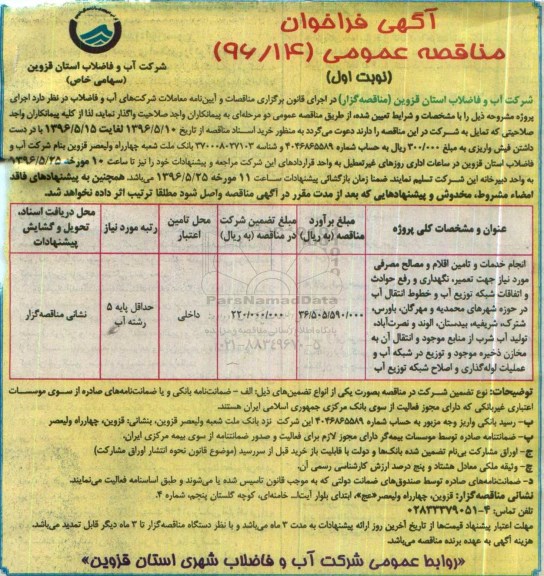 آگهی فراخوان
مناقصه عمومی (۹۶/۱۴)
(نوبت اول)
شرکت آب و فاضلاب استان قزوین
(سهامی خاص)
شرکت آب و فاضلاب استان قزوین (مناقصه‌گزار) در اجرای قانون برگزاری مناقصات و آیین‌نامه معاملات شرکت‌های آب و فاضلاب در نظر دارد اجرای
پروژه مشروحه ذیل را با مشخصات و شرایط تعیین شده، از طریق مناقصه عمومی دو مرحله‌ای به پیمانکاران واجد صلاحیت واگذار نماید، لذا از کلیه پیمانکاران واجد
صلاحیتی که تمایل به شرکت در این مناقصه را دارند دعوت می‌گردد به منظور خرید اسناد مناقصه از تاریخ ۱۳۹۶/۵/۱۰ لغایت ۱۳۹۶/۵/۱۵ با در دست
داشتن فیش واریزی به مبلغ ۳۰۰/۰۰۰ ریال به حساب شماره ۴۰۴۶۸۶۵۵۸۹ و شناسه ۳۷۰۰۰۸۰۳۷۱۰۳ بانک ملت شعبه چهارراه ولیعصر قزوین بنام شرکت آب و
فاضلاب استان قزوین در ساعات اداری روزهای غیرتعطیل به واحد قراردادهای این شرکت مراجعه و پیشنهادات خود را نیز تا ساعت ۱۰ مورخه ۱۳۹۶/۵/۲۵
به واحد دبیرخانه این شرکت تسلیم نمایند. ضمنا زمان بازگشائی پیشنهادات ساعت ۱۱ مورخه ۱۳۹۶/۵/۲۵ می‌باشد. همچنین به پیشنهادهای فاقد
امضاء مشروط، مخدوش و پیشنهادهایی که بعد از مدت مقرر در آگهی مناقصه واصل شود مطلقا ترتیب اثر داده نخواهد شد.
عنوان و مشخصات کلی پروژه
مبلغ برآورد مناقصه (به ریال)
مبلغ تضمین شرکت در مناقصه (به ریال)
محل تامین اعتبار
رتبه مورد نیاز
محل دریافت اسناد، تحویل و گشایش پیشنهادات
انجام خدمات و تامین اقلام و مصالح مصرفی
مورد نیاز جهت تعمیر، نگهداری و رفع حوادث
و اتفاقات شبکه توزیع آب و خطوط انتقال آب
در حوزه شهرهای محمدیه و مهرگان، باورس،
شترک، شریفیه، بیدستان، الوند و نصرت‌آباد،
تولید آب شرب از منابع موجود و انتقال آن به
مخازن ذخیره موجود و توزیع در شبکه آب و
عملیات لوله‌گذاری و اصلاح شبکه توزیع آب
۳۶/۵۰۵/۵۹۰/۰۰۰
۲۲۰/۰۰۰/۰۰۰
داخلی
حداقل پایه ۵ رشته آب
نشانی مناقصه‌گزار
ParsNamadData
۰۲۱-۸۸۳۴۹۶۷۰-۵
توضیحات: نوع تضمین شرکت در مناقصه بصورت یکی از انواع تضمین‌های ذیل: الف - ضمانت‌نامه بانکی و یا ضمانت‌نامه‌های صادره از سوی موسسات
اعتباری غیربانکی که دارای مجوز فعالیت از سوی بانک مرکزی جمهوری اسلامی ایران هستند.
ب- رسید بانکی واریز وجه مزبور به حساب شماره ۴۰۴۶۸۶۵۵۸۹ این شرکت نزد بانک ملت شعبه ولیعصر قزوین، بنشانی: قزوین، چهارراه ولیعصر
پ- ضمانتنامه صادره توسط موسسات بیمه‌گر دارای مجوز لازم برای فعالیت و صدور ضمانتنامه از سوی بیمه مرکزی ایران.
ج- اوراق مشارکت بی‌نام تضمین شده بانک‌ها و دولت با قابلیت باز خرید قبل از سررسید (موضوع قانون نحوه انتشار اوراق مشارکت)
چ- وثیقه ملکی معادل هشتاد و پنج درصد ارزش کارشناسی رسمی آن.
د- ضمانت‌نامه‌های صادره توسط صندوق‌های ضمانت دولتی که به موجب قانون تاسیس شده یا می‌شوند و طبق اساسنامه فعالیت می‌نمایند.
نشانی مناقصه‌گزار: قزوین، چهارراه ولیعصر«عج»، ابتدای بلوار آیت‌ا... خامنه‌ای، کوچه گلستان پنجم، شماره ۴.
تلفن تماس: ۴-۰۲۸۳۳۳۷۹۰۵۱
مهلت اعتبار پیشنهاد قیمت‌ها از تاریخ آخرین روز ارائه پیشنهادات به مدت ۳ ماه می‌باشد و با نظر دستگاه مناقصه‌گزار تا ۳ ماه دیگر قابل تمدید می‌باشد.
هزینه آگهی به عهده برنده مناقصه می‌باشد.
«روابط عمومی شرکت آب و فاضلاب شهری استان قزوین»